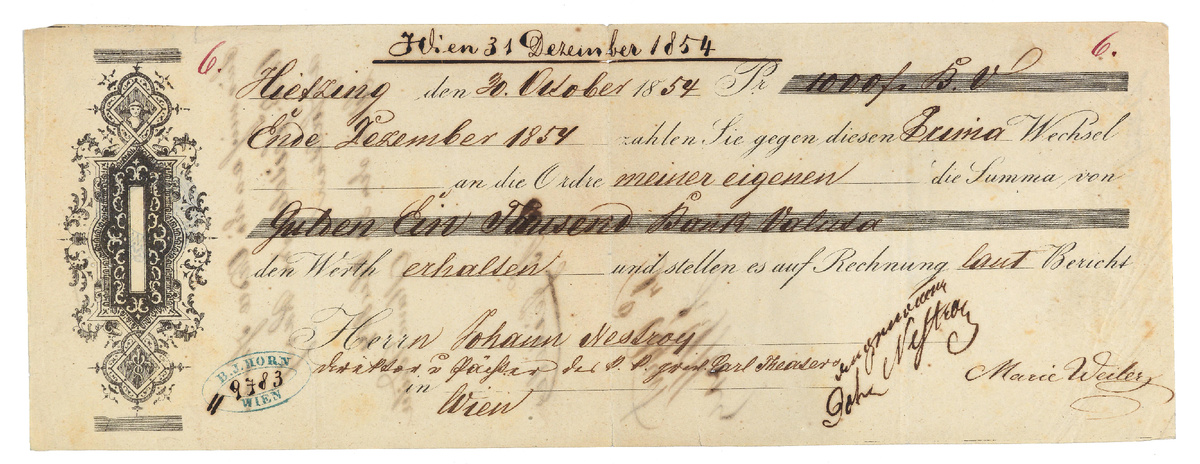 Wien 31 Dezember 1854
6. 6.
Hietzing den 30. October 1854 Pr 1000 f. B. V
Ende Dezember 1854 zahlen Sie gegen diesen Prima Wechsel
an die Ordre meiner eigenen die Summa von
Gulden Ein Tausend Bank Valuta
den Werth erhalten und stellen es auf Rechnung laut Bericht
Herrn Johann Nestroy
Direktor u Pächter des K. K. priv Carl Theaters
in Wien
angenommen
Joha Nestroy
Marie Weiler
B. J. HORN
9783
WIEN